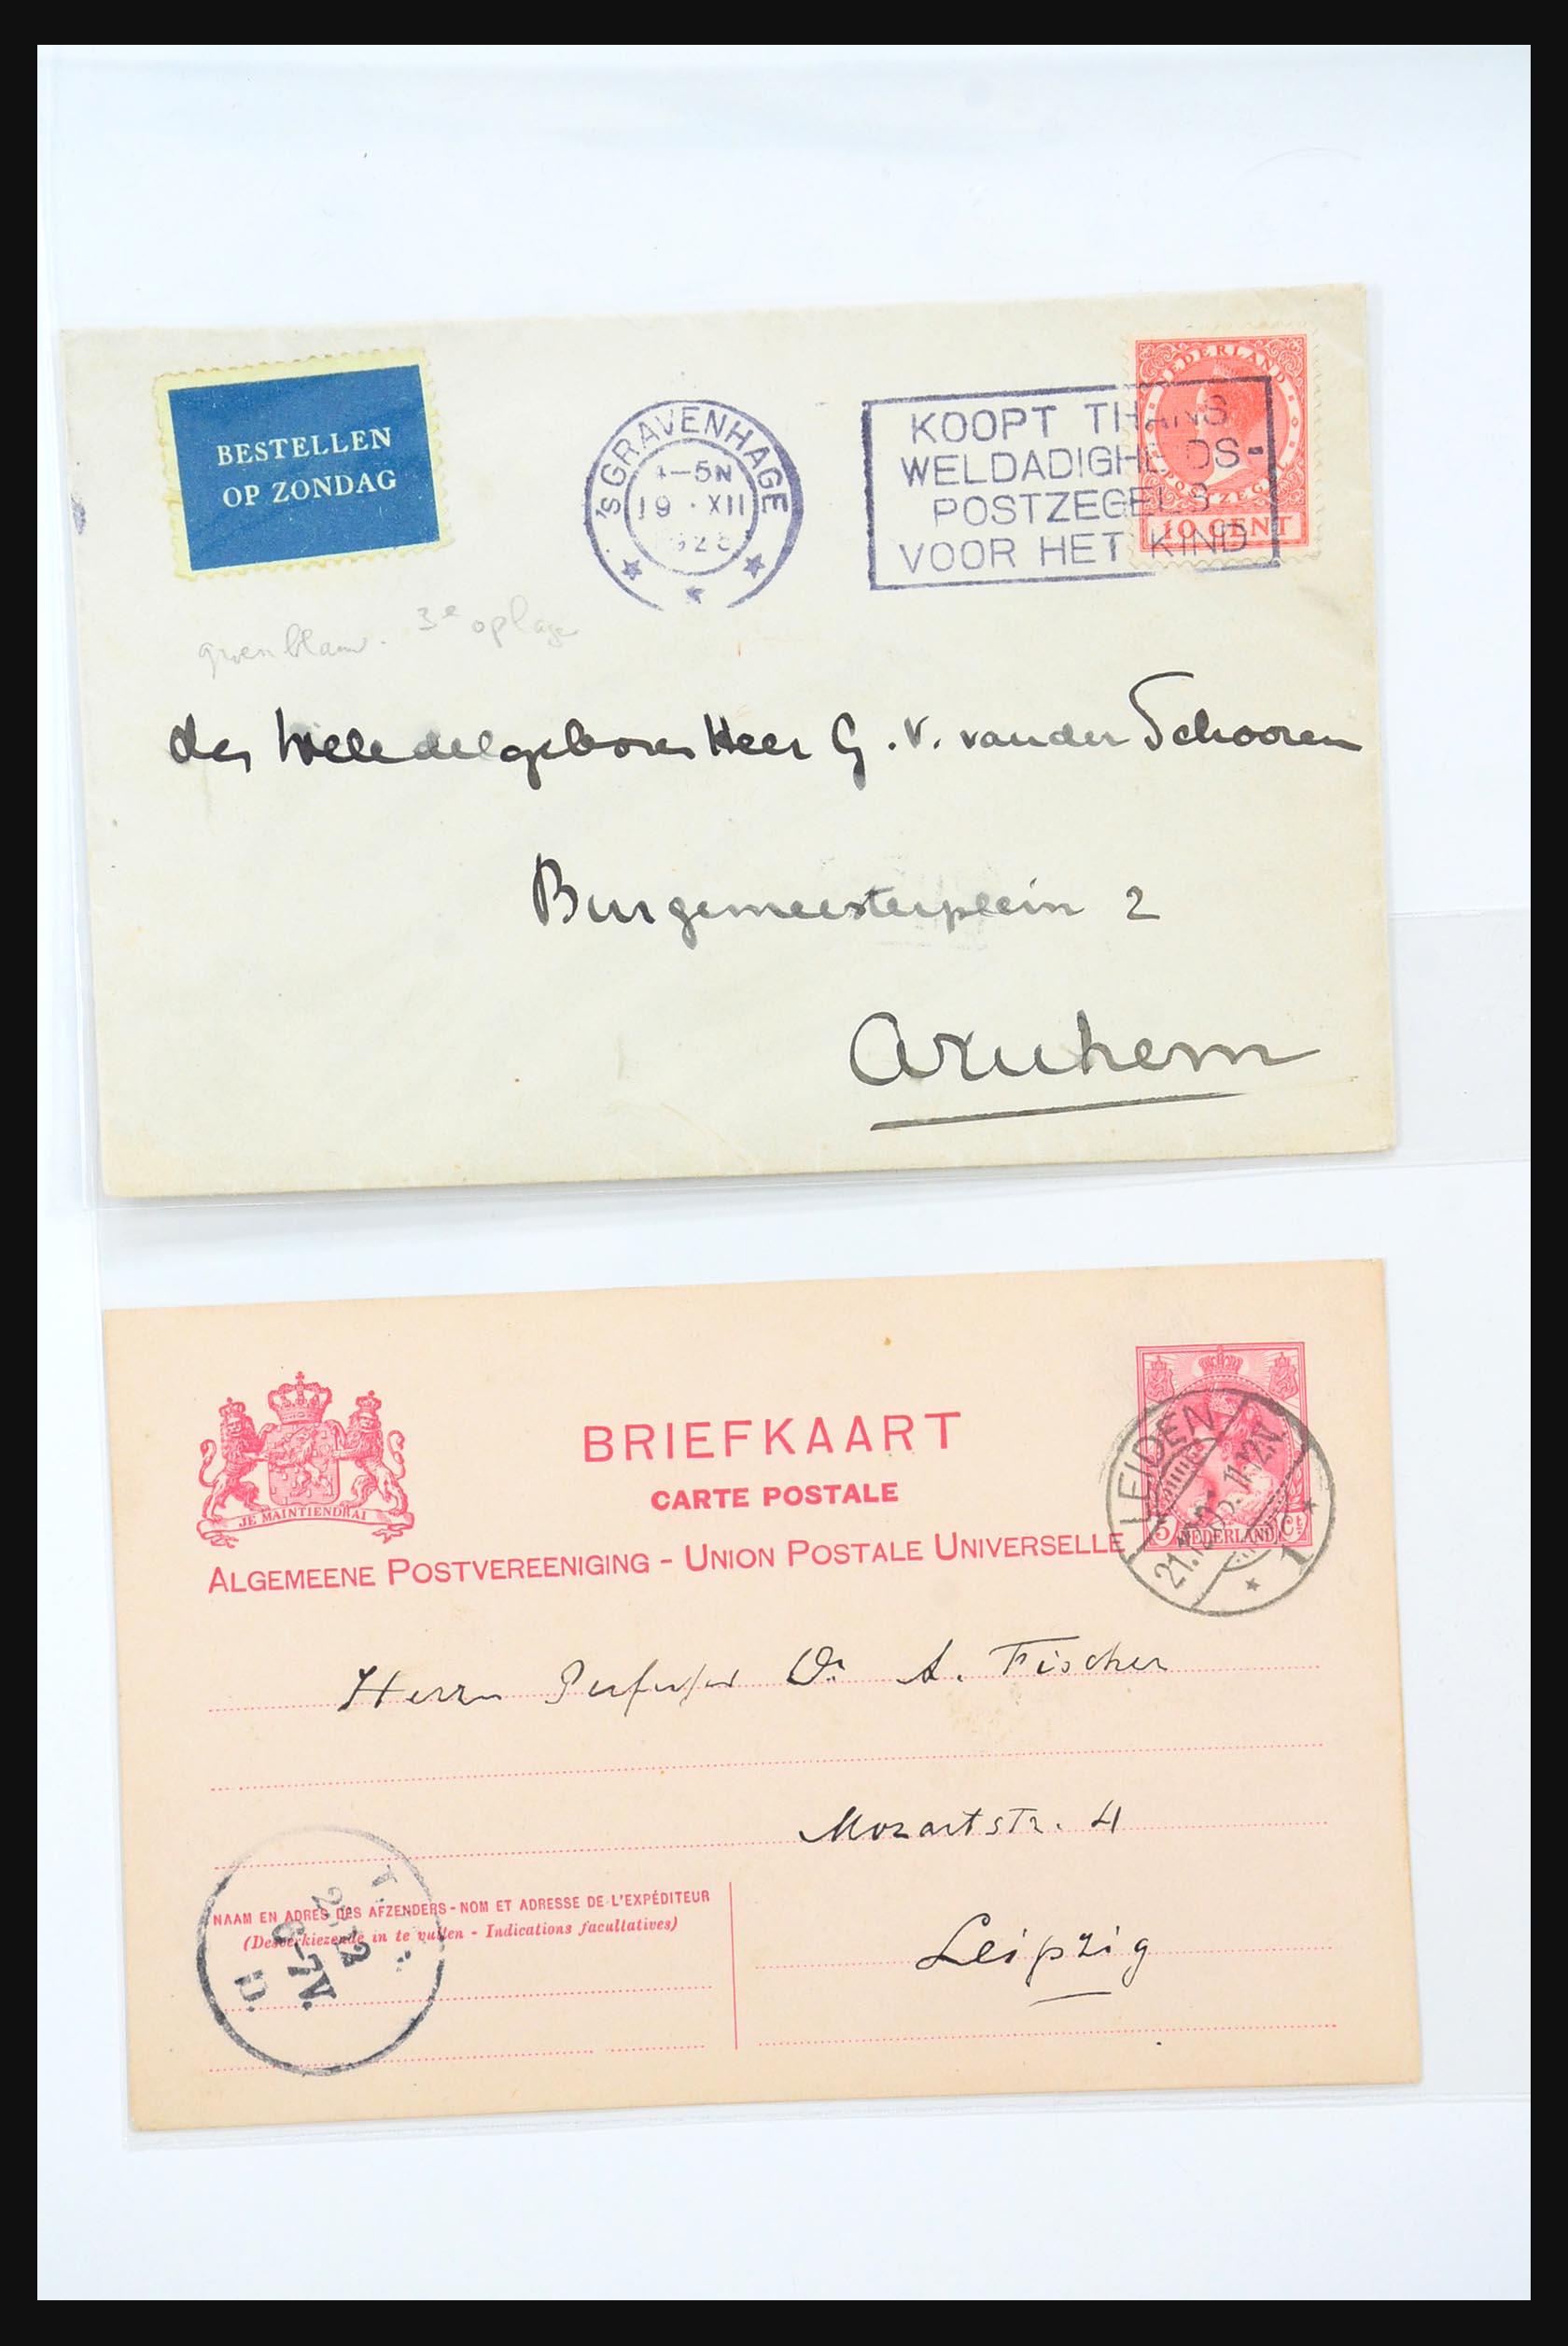 BESTELLEN
OP ZONDAG
'sGRAVENHAGE
-5N
19 · XII
192
KOOPT THANS
WELDADIGHEIDS-
POSTZEGELS
VOOR HET KIND
NEDERLAND
POSTZEGEL
10 CENT
groenblauw. 3e oplage
den Weledelgeboren Heer G. V. van der Schooren
Burgemeesterplein 2
Arnhem
JE MAINTIENDRAI
BRIEFKAART
CARTE POSTALE
ALGEMEENE POSTVEREENIGING - UNION POSTALE UNIVERSELLE
LEIDEN
1
5 NEDERLAND Ct
Herrn Professor Dr A. Fischer
Mozartstr. 4
Leipzig
NAAM EN ADRES DES AFZENDERS - NOM ET ADRESSE DE L'EXPÉDITEUR
(Desverkiezende in te vullen - Indications facultatives)
6-7V.